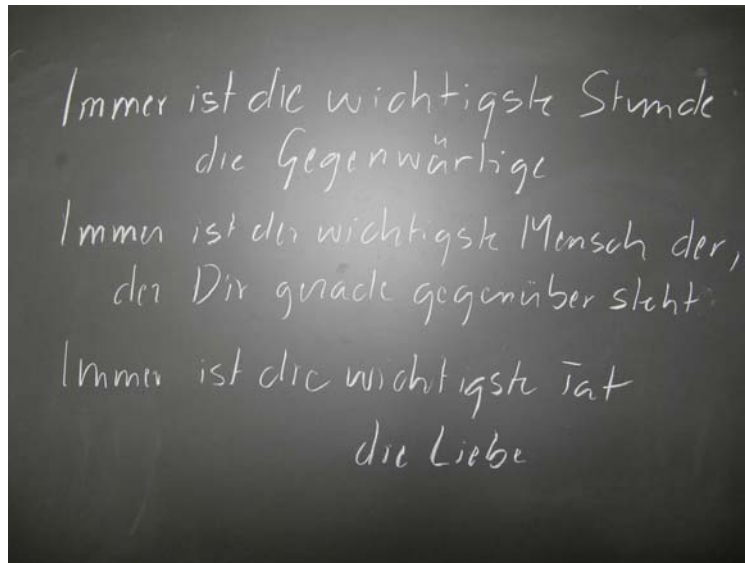 Immer ist die wichtigste Stunde
die Gegenwärtige
Immer ist der wichtigste Mensch der,
der Dir gerade gegenüber steht
Immer ist die wichtigste Tat
die Liebe